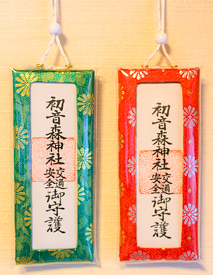 初音森神社
交通安全
御守護
初音森神社
交通安全
御守護